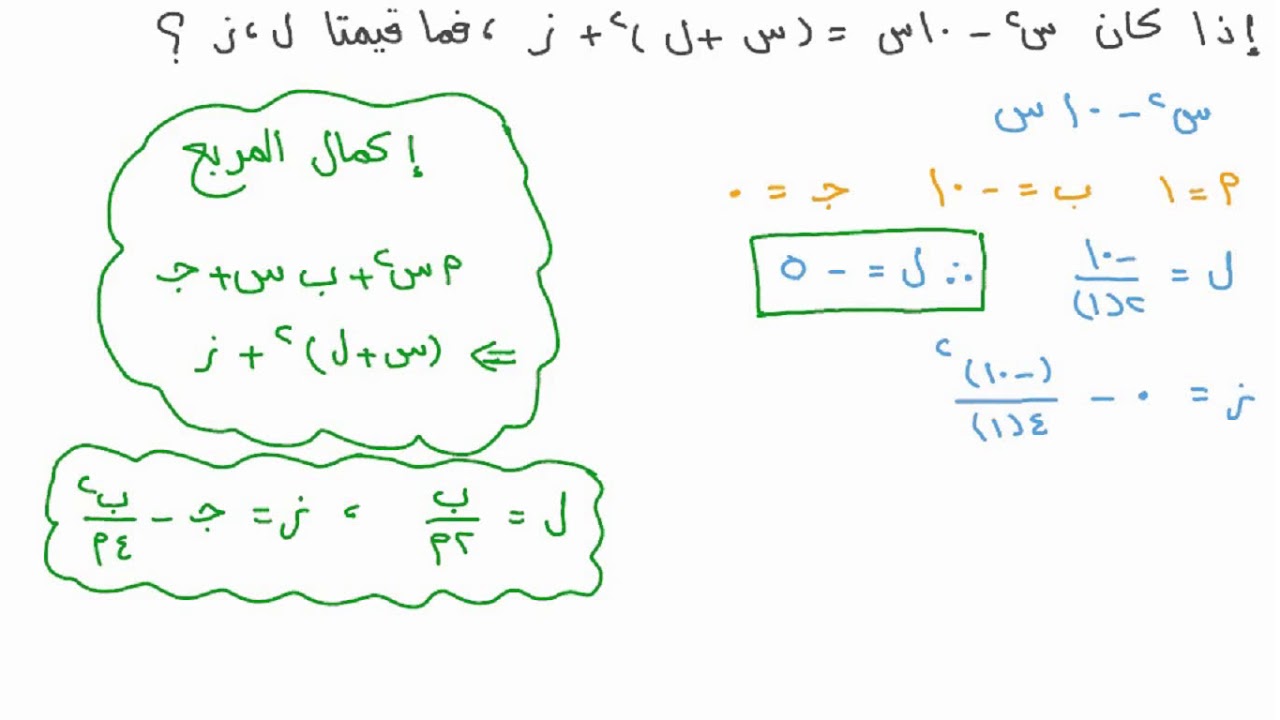 إذا كان س² - ١٠س = (س + ل)² + ز ، فما قيمتا ل، ز ؟
س² - ١٠س
م = ١ ب = - ١٠ جـ = ٠
ل = -١٠/٢(١) ∴ ل = - ٥
ز = ٠ - (-١٠)²/٤(١)
إكمال المربع
م س² + ب س + جـ
⇐ (س + ل)² + ز
ل = ب/٢م ، ز = جـ - ب²/٤م